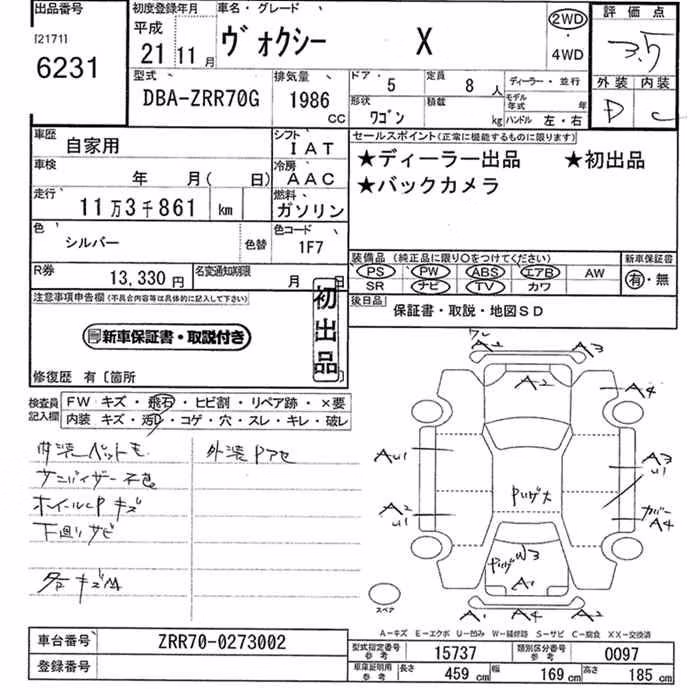 出品番号
[2171]
6231
初度登録年月
平成
21年 11月
車名・グレード
ヴォクシー X
2WD
4WD
評価点
3.5
外装 内装
D C
型式
DBA-ZRR70G
排気量
1986 CC
ドア・ 5
定員 8人
形状 ワゴン
積載 kg
ディーラー・並行
モデル年式 年
ハンドル 左・右
車歴 自家用
シフト IAT
車検 年 月( 日)
冷房 AAC
走行 11万3千861 km
燃料 ガソリン
色 シルバー 色替
色コード 1F7
R券 13,330円
名変通知期限 月 日
セールスポイント(正常に機能するものに限ります)
★ディーラー出品 ★初出品
★バックカメラ
装備品(純正品に限り○をつけてください)
PS PW ABS エアB AW
SR ナビ TV カワ
新車保証書
有・無
後日品
保証書・取説・地図SD
注意事項申告欄(不具合内容等は具体的に記入して下さい)
新車保証書・取説付き
初出品
修復歴 有〔箇所
検査員記入欄
FW キズ・飛石・ヒビ割・リペア跡・×要
内装 キズ・汚レ・コゲ・穴・スレ・キレ・破レ
内装ペットモ
外装Pアセ
サンバイザー不良
ホイールCPキズ
下廻りサビ
ワレ
A2 A3
A2
A4
AU1
A3
U1
A2
U1
カバー
A4
W3
A1
A1 A4 A2
スペア
A-キズ E-エクボ U-凹み W-補修跡 S-サビ C-腐食 XX-交換済
車台番号 ZRR70-0273002
登録番号
型式指定番号 参考 15737
類別区分番号 参考 0097
車庫証明用 参考 長さ 459cm 幅 169cm 高さ 185cm